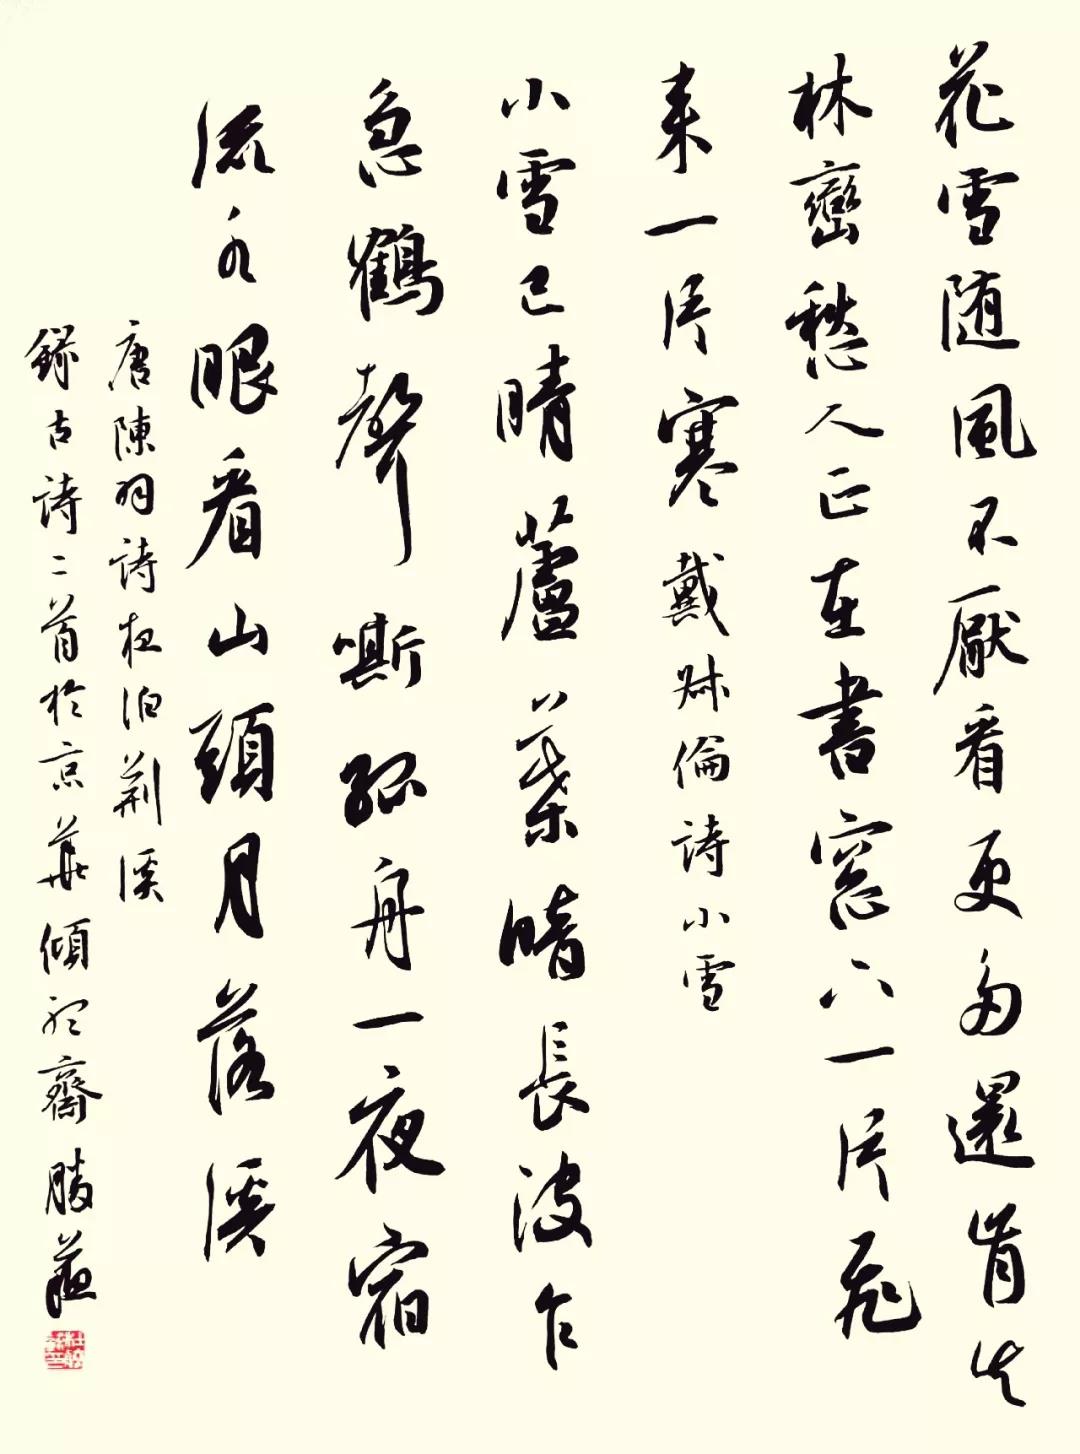 花雪随風不厭看更多還肯失
林巒愁人正在書窓下一片飛
来一片寒戴叔倫詩小雪
小雪已晴蘆葉暗長波乍
急鶴聲嘶孤舟一夜宿
流水眼看山頭月落溪
唐陳羽詩夜泊荆溪
錄古詩二首於京華傾齋勝